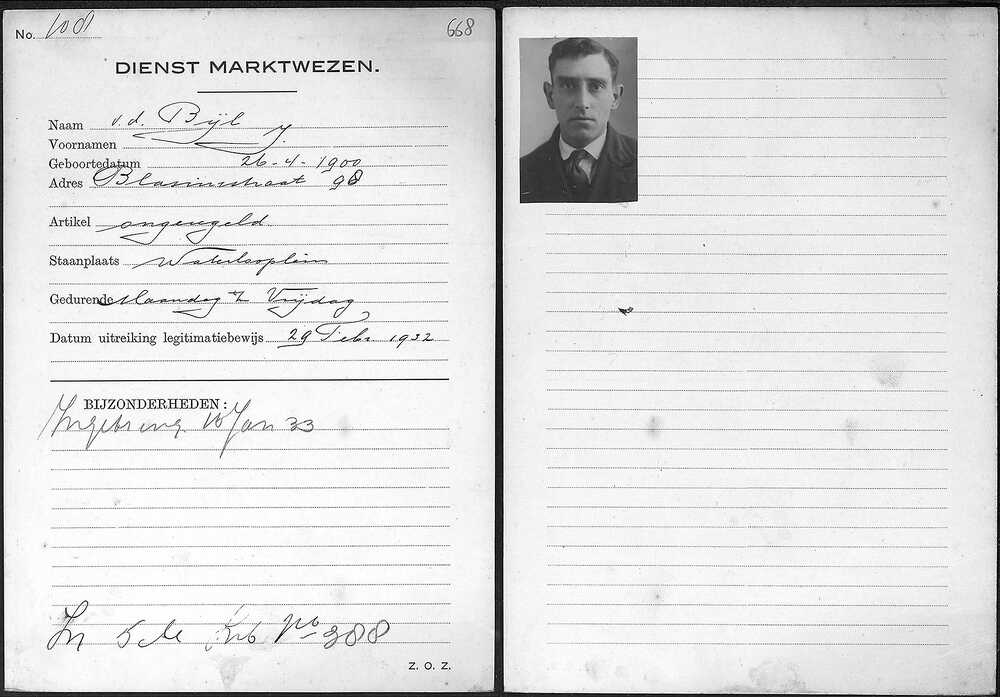 No. 108
668
DIENST MARKTWEZEN.
Naam v. d. Bijl
Voornamen J.
Geboortedatum 26-4-1900
Adres Blasiusstraat 98
Artikel ongeregeld
Staanplaats Waterlooplein
Gedurende Maandag t/ Vrijdag
Datum uitreiking legitimatiebewijs 29 Febr. 1932
BIJZONDERHEDEN:
16 Jan 33
In 5de No 388
Z. O. Z.